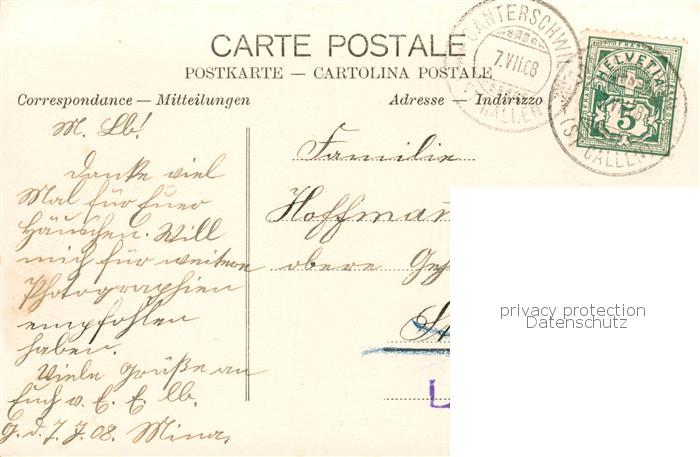 CARTE POSTALE
POSTKARTE — CARTOLINA POSTALE
Correspondance — Mitteilungen
Adresse — Indirizzo
GANTERSCHWIL
7.VII.08
(ST. GALLEN)
HELVETIA
5
(ST. GALLEN)
M. Lb!
Danke viel
Mal für Euer
Häuschen. Will
mich für weitere
Photographien
empfohlen
haben.
Viele Grüße an
Euch v. E. E. lb.
G. d. 7. 7. 08. Mina.
Familie
Hoffmann
obere
privacy protection
Datenschutz